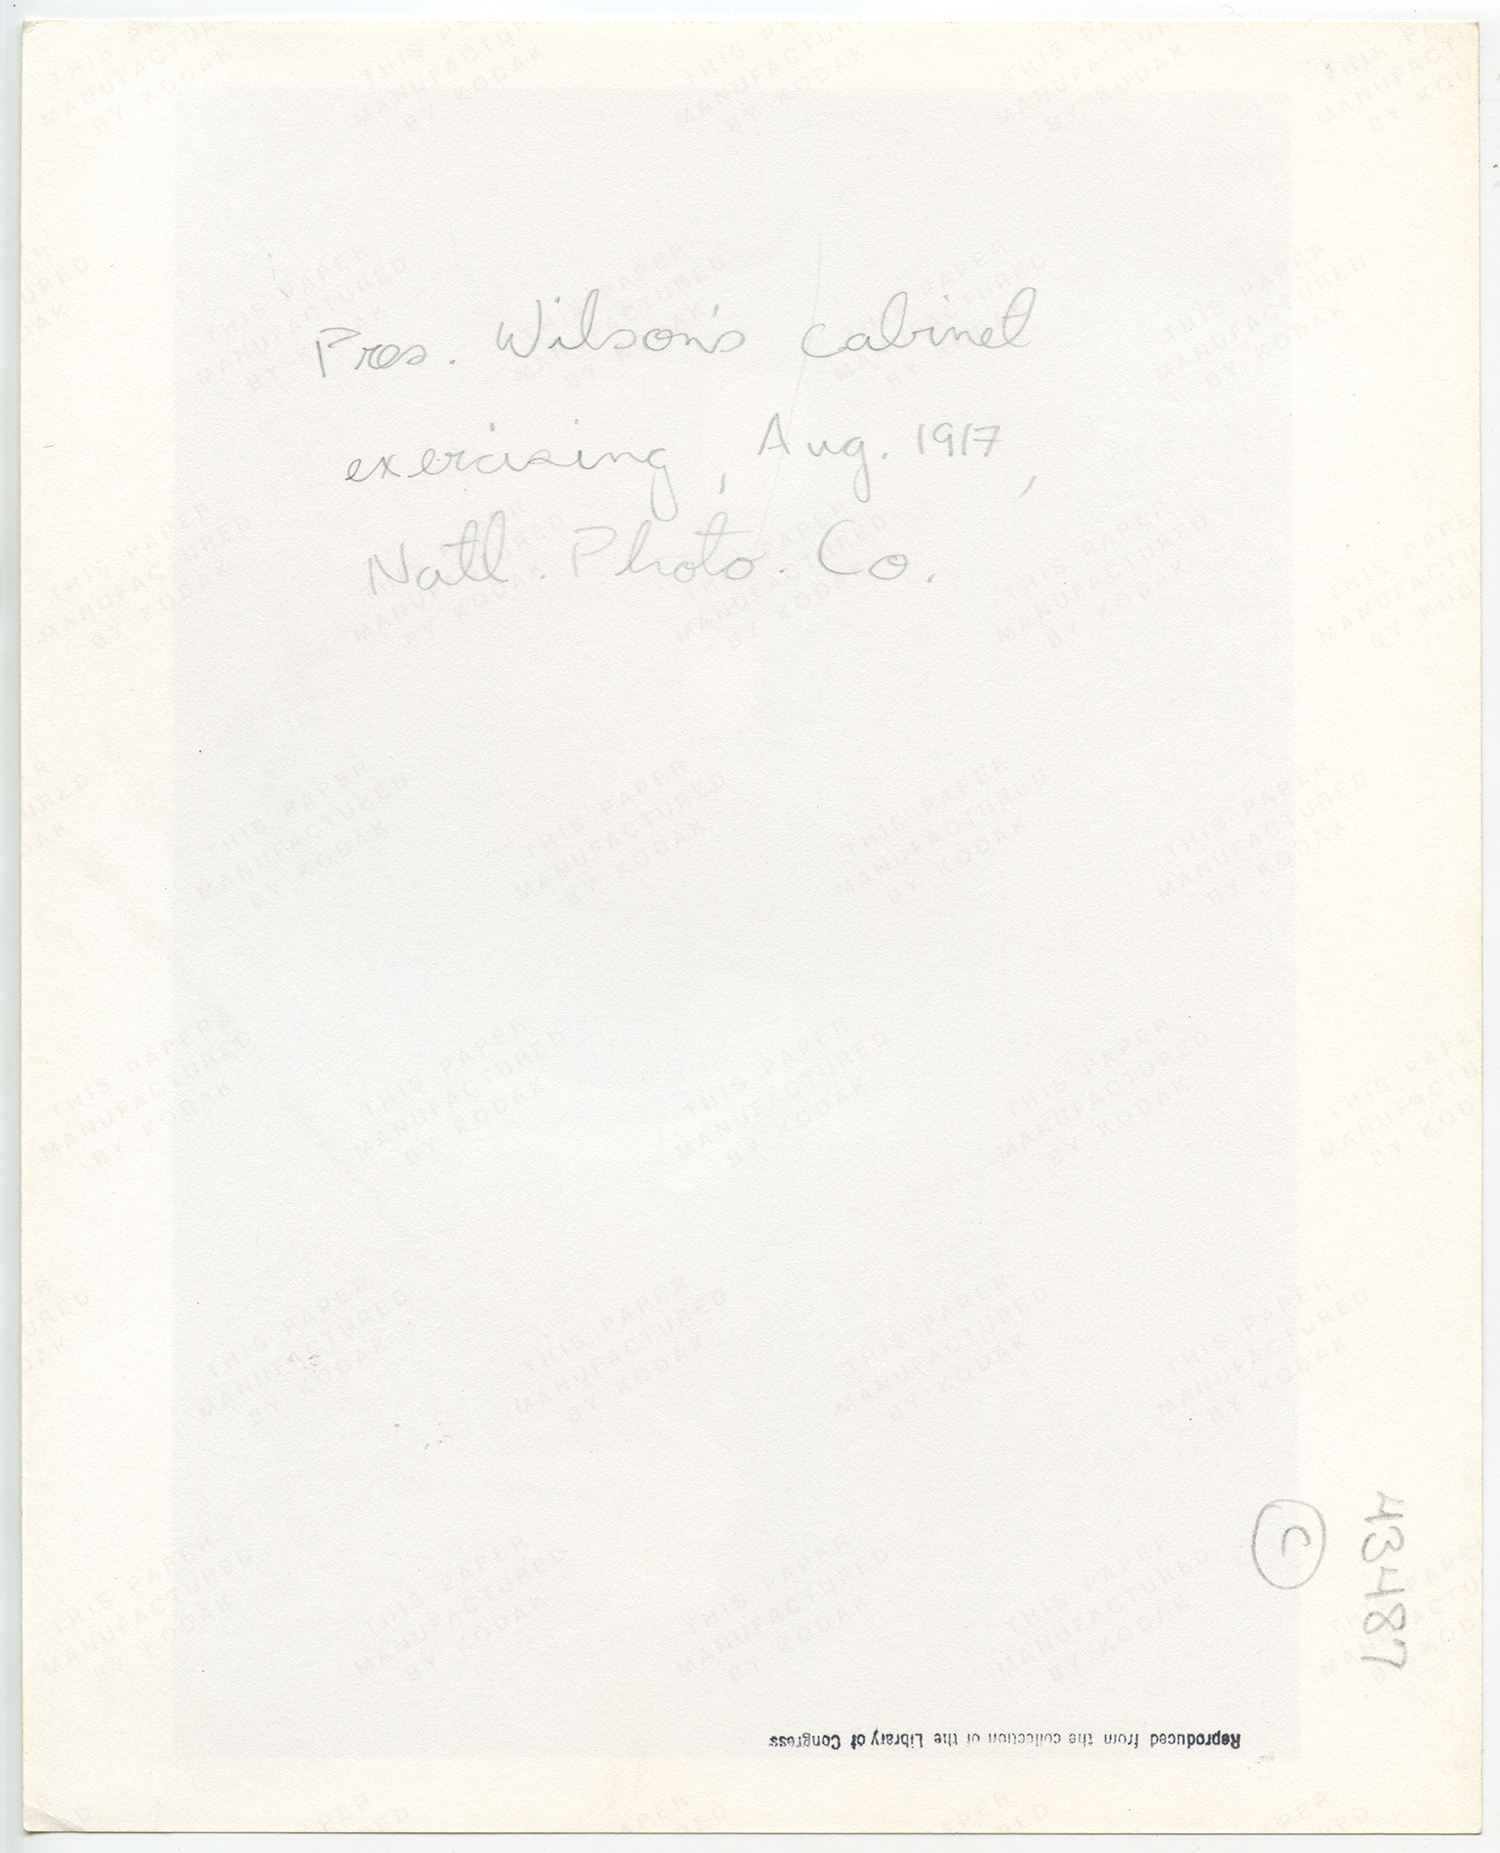 Pres. Wilson's cabinet
exercising, Aug. 1917,
Natl. Photo. Co.
C
43487
Reproduced from the collection of the Library of Congress
THIS PAPER
MANUFACTURED
BY KODAK